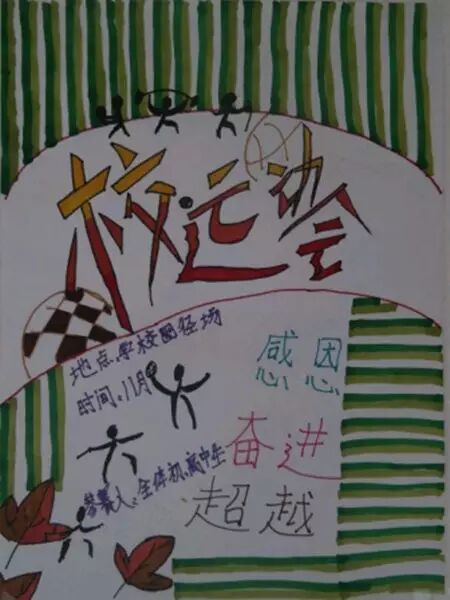 校运动会
地点:学校田径场
时间:八月
感恩
奋进
参赛人:全体初、高中生
超越